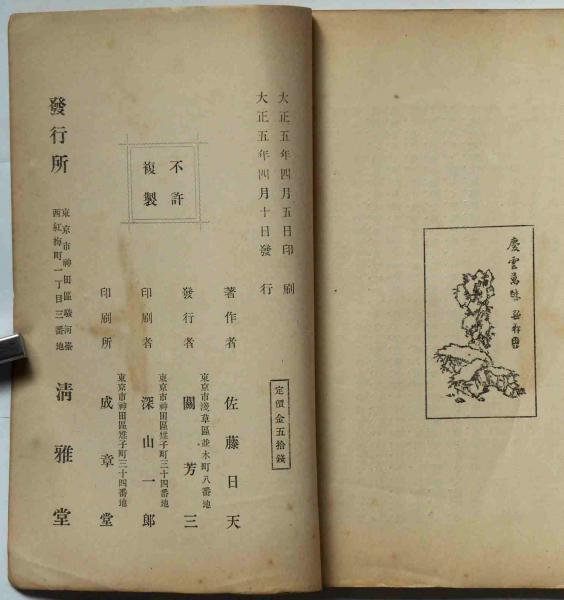 慶雲萬
大正五年四月五日印刷
大正五年四月十日發行
不許
複製
定價金五拾錢
著作者 佐藤日天
東京市淺草區並木町八番地
發行者 關芳三
東京市神田區雉子町三十四番地
印刷者 深山一郎
東京市神田區雉子町三十四番地
印刷所 成章堂
東京市神田區駿河臺
西紅梅町一丁目三番地
發行所 淸雅堂